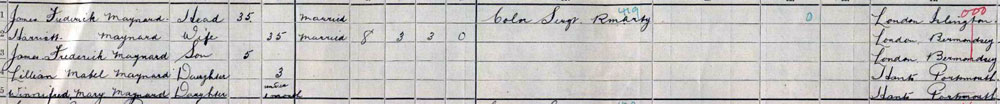 1 James Frederick Maynard Head 35 Married Colr Sergt 419 0 London Islington 000
2 Harriett Maynard Wife 35 Married 8 3 3 0 London Bermondsey
3 James Frederick Maynard Son 5 London Bermondsey
4 Lillian Mabel Maynard Daughter 3 Hants Portsmouth
5 Winnifred Mary Maynard Daughter under 1 month Hants Portsmouth